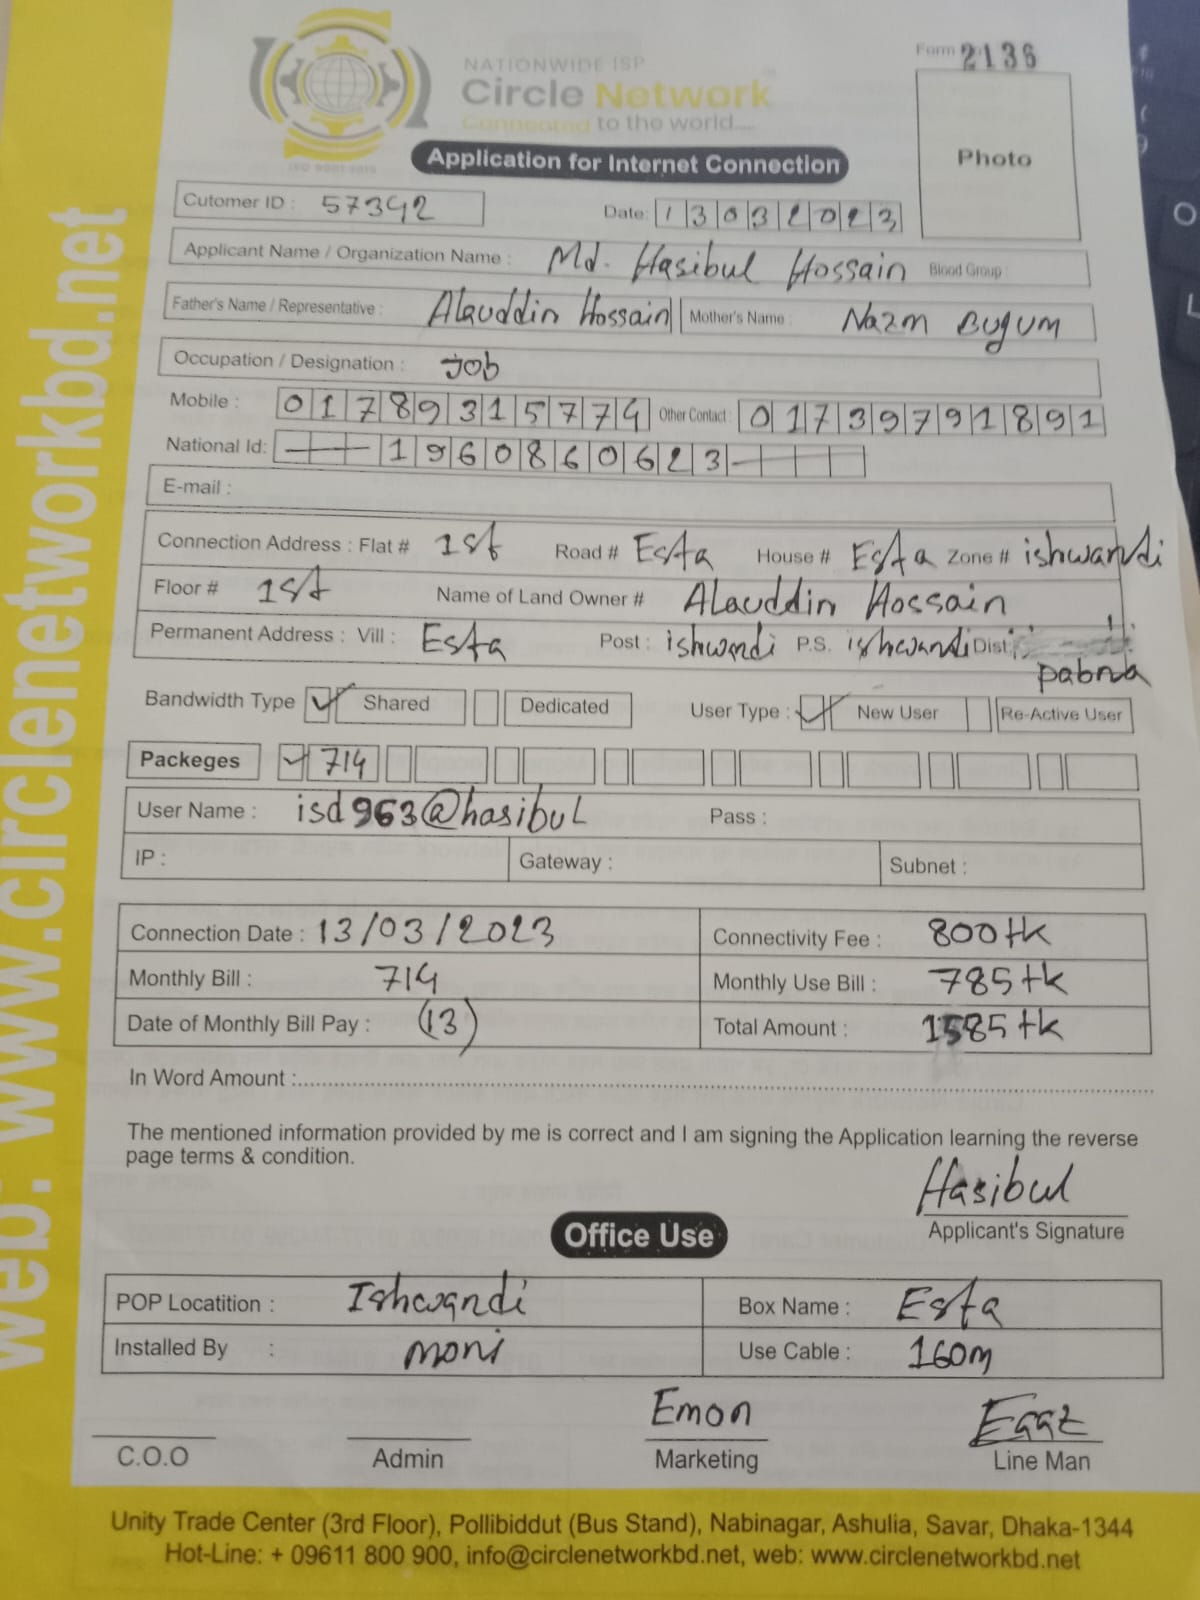 Form 2136
NATIONWIDE ISP
Circle Network
Connected to the world....
ISO 9001:2015
Photo
Application for Internet Connection
Cutomer ID : 57342 Date: 13032023
Applicant Name / Organization Name : Md. Hasibul Hossain Blood Group :
Father's Name / Representative : Alauddin Hossain Mother's Name : Nazm Bugum
Occupation / Designation : Job
Mobile : 01789315774 Other Contact : 01739791891
National Id: 1960860623
E-mail :
Connection Address : Flat # 1st Road # Esta House # Esta Zone # ishwardi
Floor # 1st Name of Land Owner # Alauddin Hossain
Permanent Address : Vill : Esta Post : ishwardi P.S. ishwardi Dist : pabna
Bandwidth Type ✓ Shared Dedicated User Type : ✓ New User Re-Active User
Packeges ✓ 714
User Name : isd963@hasibul Pass :
IP : Gateway : Subnet :
Connection Date : 13/03/2023 Connectivity Fee : 800tk
Monthly Bill : 714 Monthly Use Bill : 785tk
Date of Monthly Bill Pay : (13) Total Amount : 1585tk
In Word Amount :
The mentioned information provided by me is correct and I am signing the Application learning the reverse
page terms & condition.
Hasibul
Applicant's Signature
Office Use
POP Locatition : Ishwardi Box Name : Esta
Installed By : moni Use Cable : 160m
Emon
C.O.O Admin Marketing Line Man
Unity Trade Center (3rd Floor), Pollibiddut (Bus Stand), Nabinagar, Ashulia, Savar, Dhaka-1344
Hot-Line: + 09611 800 900, info@circlenetworkbd.net, web: www.circlenetworkbd.net
web: www.circlenetworkbd.net